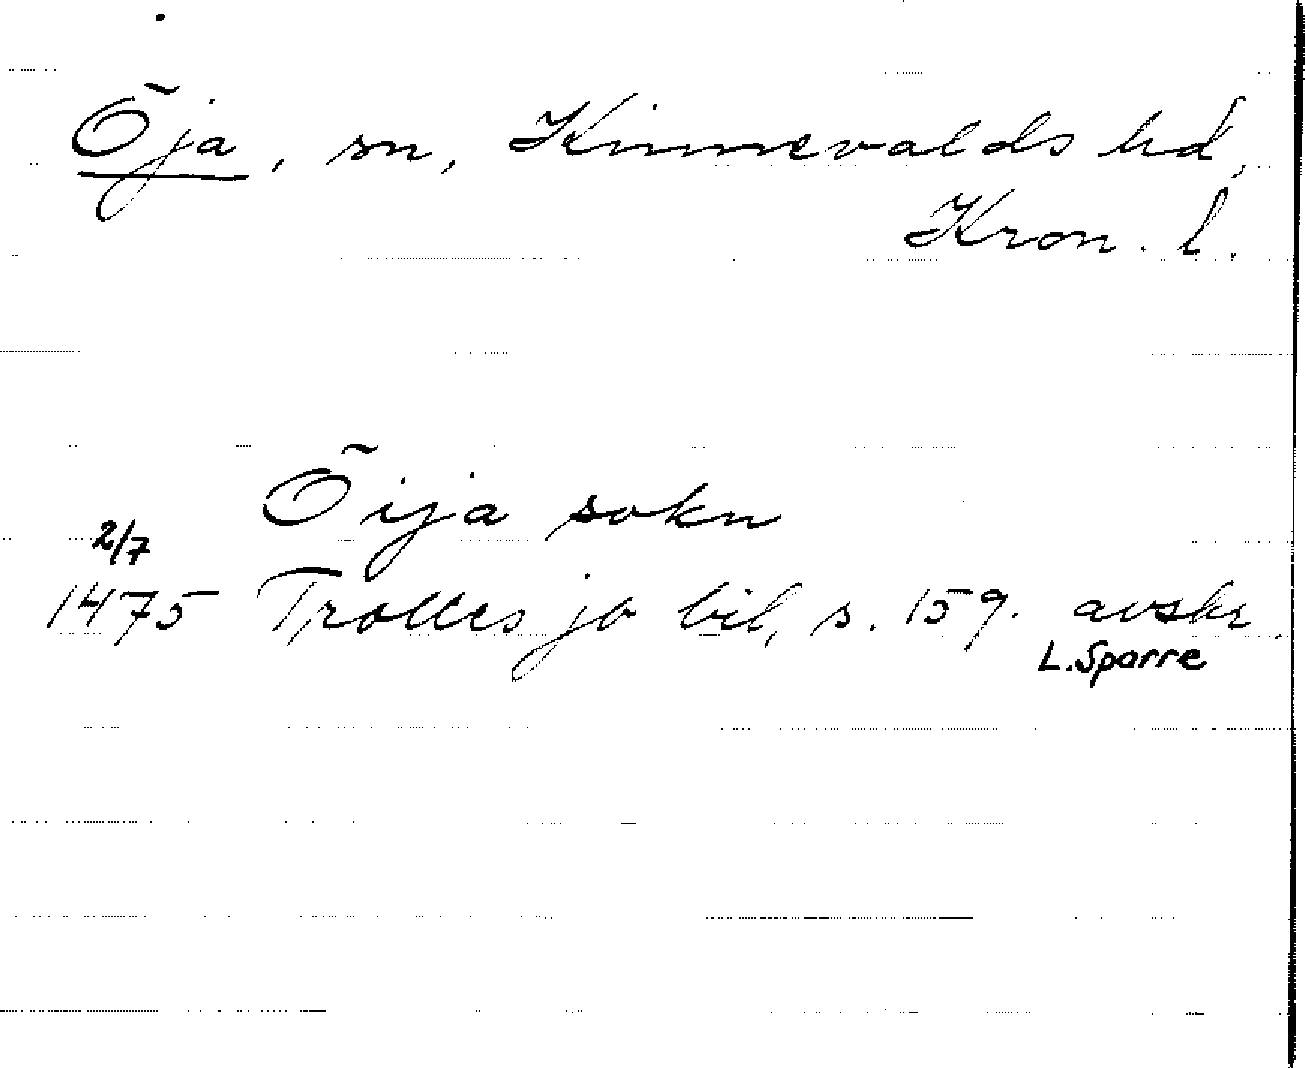 Öja, sn, Kinnevalds hd,
Kron. l.
Öija sokn
2/7
1475 Trolles jb bil, s. 159. avskr.
L. Sparre